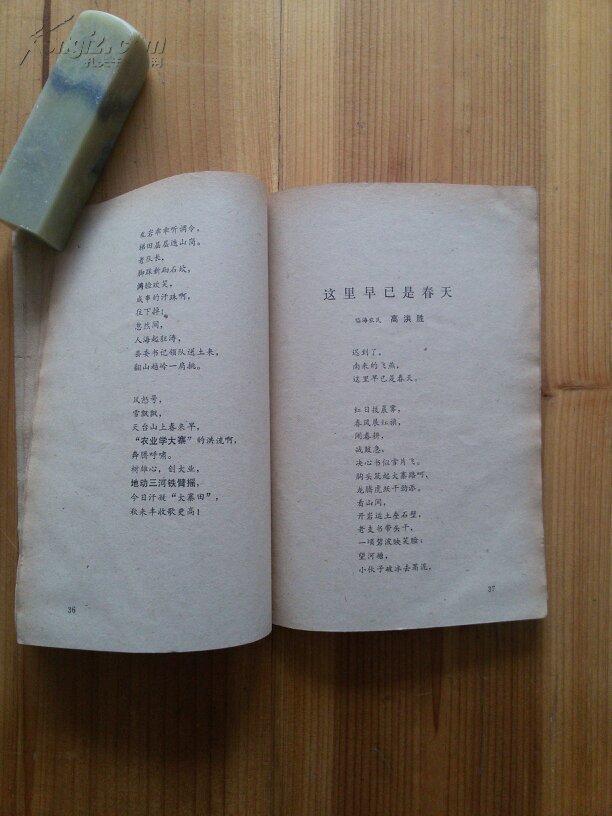 乱岩乖乖听调令，
梯田层层迭山间。
老伙长，
脚踩新砌石坎，
满脸欢笑，
成串的汗珠啊，
往下掉！
忽然间，
人海起狂涛，
县委书记领队送土来，
翻山越岭一肩挑。
风怒号，
雪飘飘，
天台山上春来早，
“农业学大寨”的洪流啊，
奔腾呼啸。
树雄心，创大业，
地动三河铁臂摇，
今日汗凝“大寨田”，
秋来丰收歌更高！
36
这里早已是春天
临海农民 高洪胜
迟到了，
南来的飞燕，
这里早已是春天。
红日拨晨雾，
春风展红旗，
闹春耕，
战鼓急，
决心书似雪片飞。
胸头筑起大寨路呵，
龙腾虎跃干劲添。
看山间，
开岩运土垒石壁，
老支书带头干，
一顷碧波映笑脸；
望河塘，
小伙子破冰去罱泥，
37